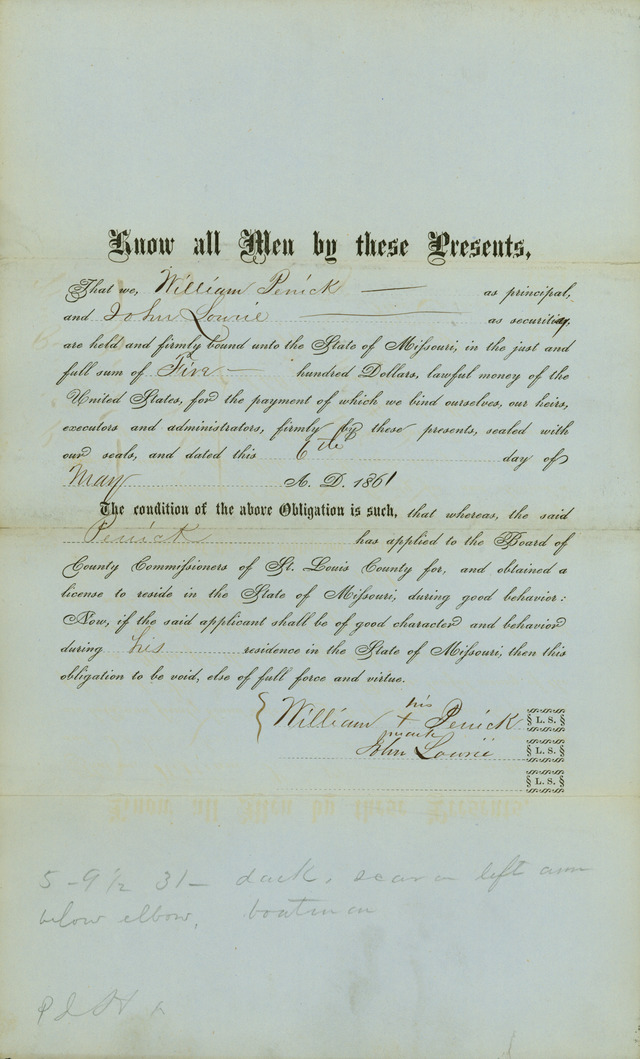 Know all Men by these Presents,
That we, William Penick — as principal,
and John Lowrie — as security,
are held and firmly bound unto the State of Missouri, in the just and
full sum of Five — hundred Dollars, lawful money of the
United States, for the payment of which we bind ourselves, our heirs,
executors and administrators, firmly by these presents, sealed with
our seals, and dated this 6th day of
May A. D. 1861
The condition of the above Obligation is such, that whereas, the said
Penick has applied to the Board of
County Commissioners of St. Louis County for, and obtained a
license to reside in the State of Missouri, during good behavior:
Now, if the said applicant shall be of good character and behavior
during his residence in the State of Missouri, then this
obligation to be void, else of full force and virtue.
his
William + Penick L. S.
mark
John Lowrie L. S.
L. S.
5-9½ 31- dark, scar on left arm
below elbow, boatman